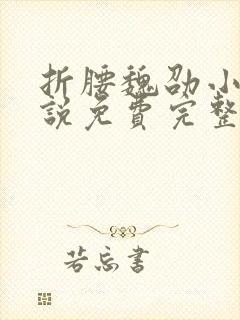 折腰魏劭小
說免費完整
若忘書